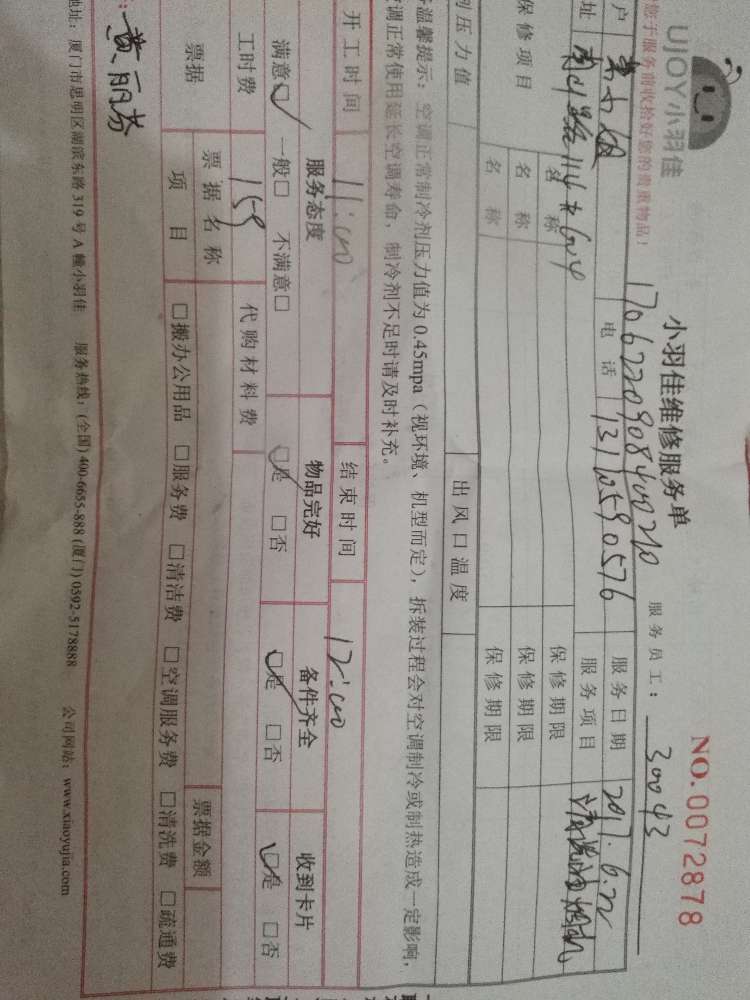 UJOY小羽佳
小羽佳维修服务单
NO.0072878
1706220908400210
服务员工：30043
您于服务前收拾好您的贵重物品！
户
电话 13110590576
服务日期 2017.6.22
址
服务项目 清洗油烟机
保修项目
名称
保修期限
名称
保修期限
名称
保修期限
压力值
出风口温度
温馨提示：空调正常制冷剂压力值为0.45mpa（视环境、机型而定），拆装过程会对空调制冷或制热造成一定影响，
调正常使用延长空调寿命，制冷剂不足时请及时补充。
开工时间 11:00
结束时间 12:00
服务态度
物品完好
备件齐全
收到卡片
满意□ 一般□ 不满意□
□是 □否
□是 □否
□是 □否
工时费 159
代购材料费
票据
票据名称
票据金额
项目
□搬办公用品 □服务费 □清洁费 □空调服务费 □清洗费 □疏通费
黄丽芬
地址：厦门市思明区湖滨东路319号A幢小羽佳 服务热线：(全国) 400-6655-888 (厦门) 0592-5178888 公司网站：www.xiaoyujia.com